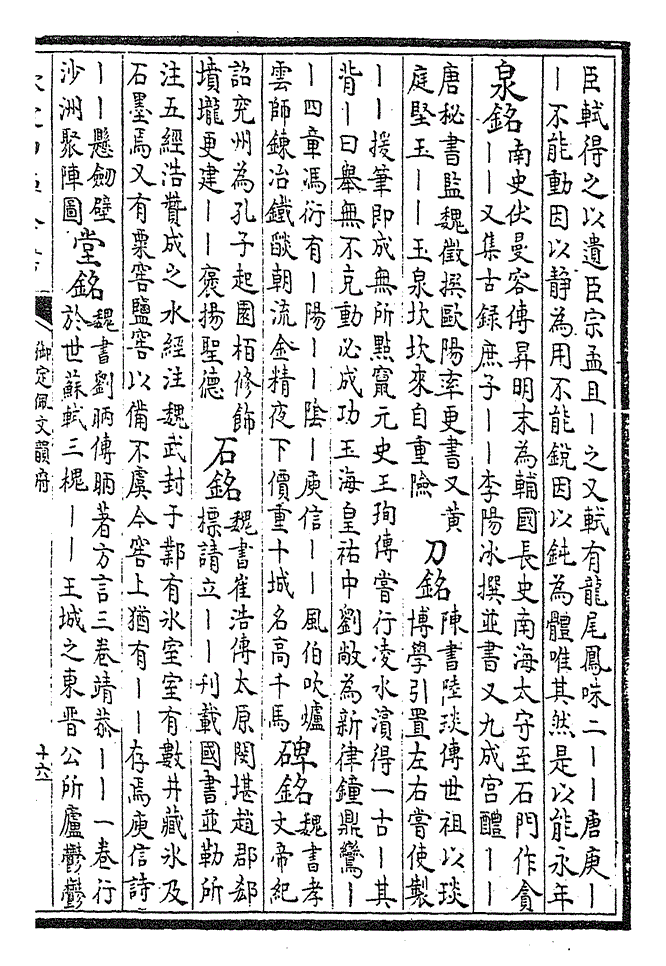 臣軾得之以遺臣宗孟且丨之又軾有龍尾鳳咮二丨丨唐庚丨
丨不能動因以静為用不能鋭因以鈍為體唯其然是以能永年
泉銘
南史伏曼容傳昇明末為輔國長史南海太守至石門作貪
丨丨又集古録庶子丨丨李陽冰撰並書又九成宫醴丨丨
唐秘書監魏徵撰歐陽率更書又黄
庭堅玉丨丨玉泉坎坎來自重險
刀銘
陳書陸琰傳世祖以琰
博學引置左右嘗使製
丨丨援筆即成無所點竄元史王珣傳嘗行凌水濵得一古丨其
背丨曰舉無不克動必成功玉海皇祐中劉敞為新律鐘鼎鸞丨
丨四章馮衍有丨陽丨丨陰丨庾信丨丨風伯吹爐
雲師鍊冶鐵燄朝流金精夜下價重十城名高千馬
碑銘
魏書孝
文帝紀
詔兖州為孔子起園栢修飾
墳壠更建丨丨褒揚聖德
石銘
魏書崔浩傳太原閔堪趙郡郄
標請立丨丨刊載國書並勒所
注五經浩贊成之水經注魏武封于鄴有氷室室有數井藏氷及
石墨焉又有粟窖鹽窖以備不虞今窖上猶有丨丨存焉庾信詩
丨丨懸劒壁
沙洲聚陣圖
堂銘
魏書劉昞傳昞著方言三卷靖恭丨丨一卷行
於世蘇軾三槐丨丨王城之東晋公所廬鬱鬱
御定佩文韻府
十六